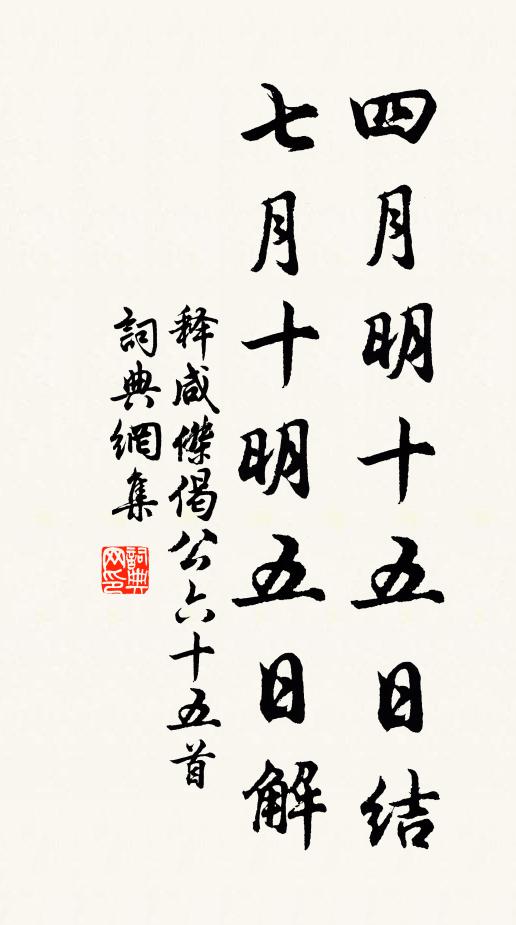 四月明十五日結
七月十明五日解
释咸傑偈公六十五首
詞典網集
詞典网印